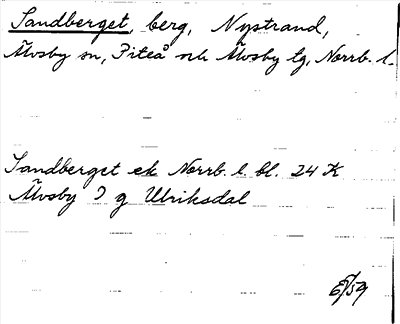 Sandberget, berg, Nystrand,
Älvsby sn, Piteå och Älvsby tg, Norrb. l.
Sandberget ek Norrb. l. bl. 24 K
Älvsby J g Ulriksdal